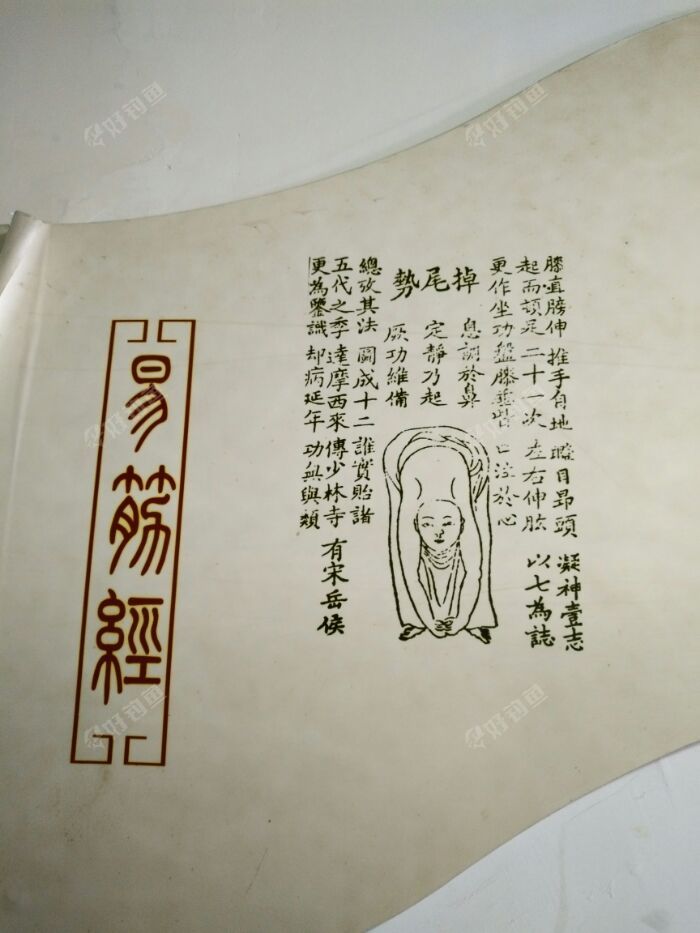 掉尾勢
膝直膀伸 推手自地 瞪目昂頭 凝神壹志
起而頓足 二十一次 左右伸肱 以七為誌
更作坐功 盤膝垂眥 口注於心
息調於鼻
定靜乃起
厥功維備
總攷其法 圖成十二 誰實貽諸
五代之季 達摩西來 傳少林寺 有宋岳侯
更為鑒識 却病延年 功無與類
易筋經
好钓鱼
好钓鱼
好钓鱼
好钓鱼
好钓鱼